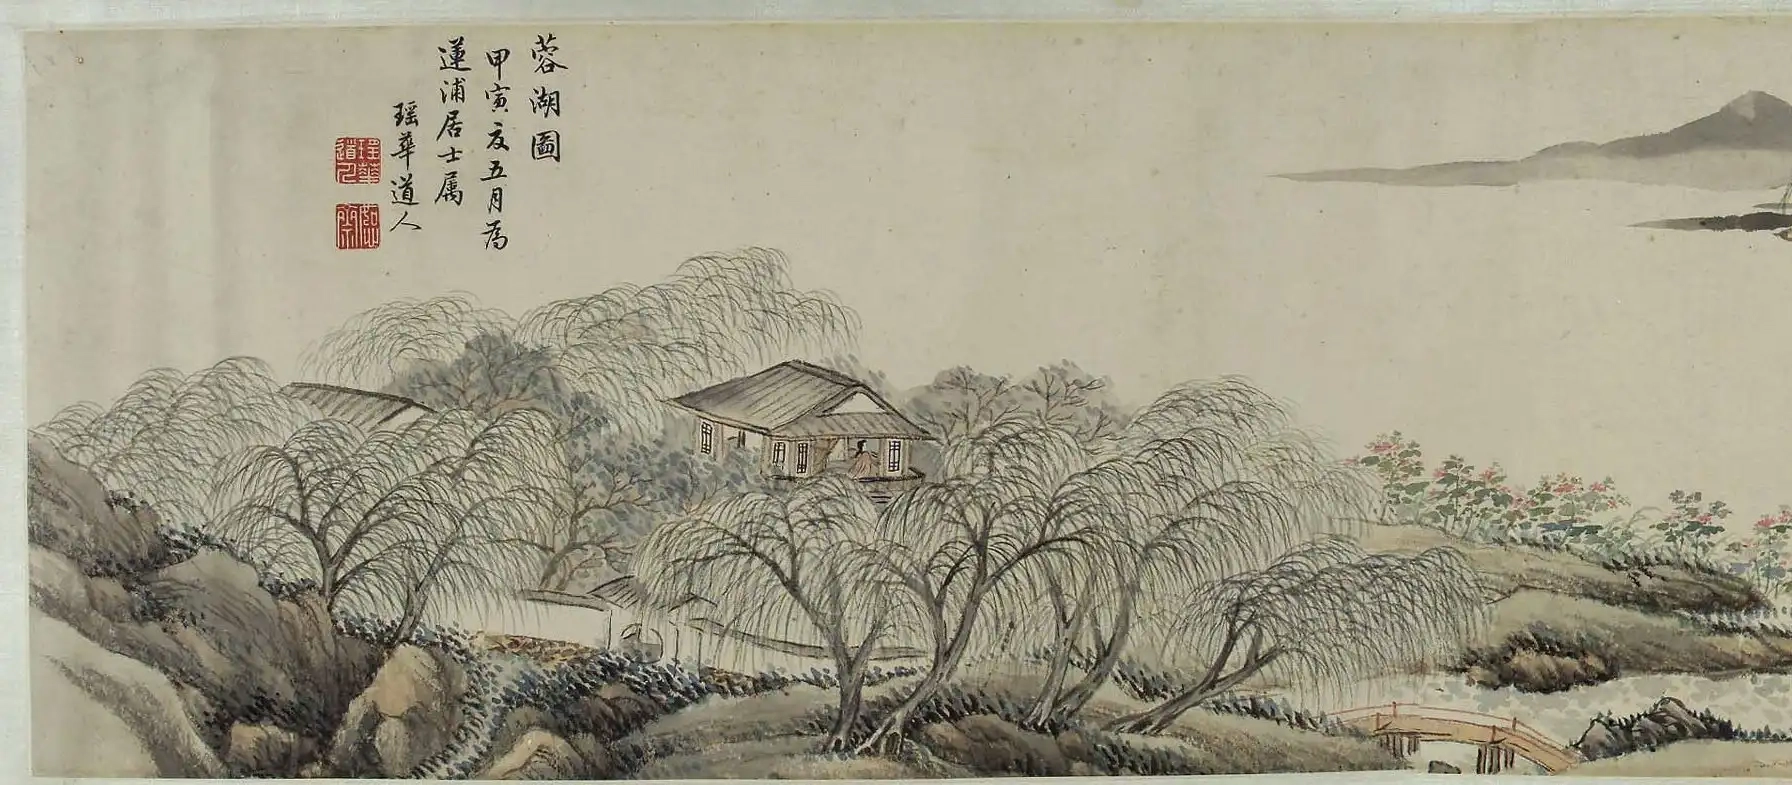 蓉湖圖
甲寅夏五月為
蓮浦居士属
瑶華道人
瑶華道人
恕齋